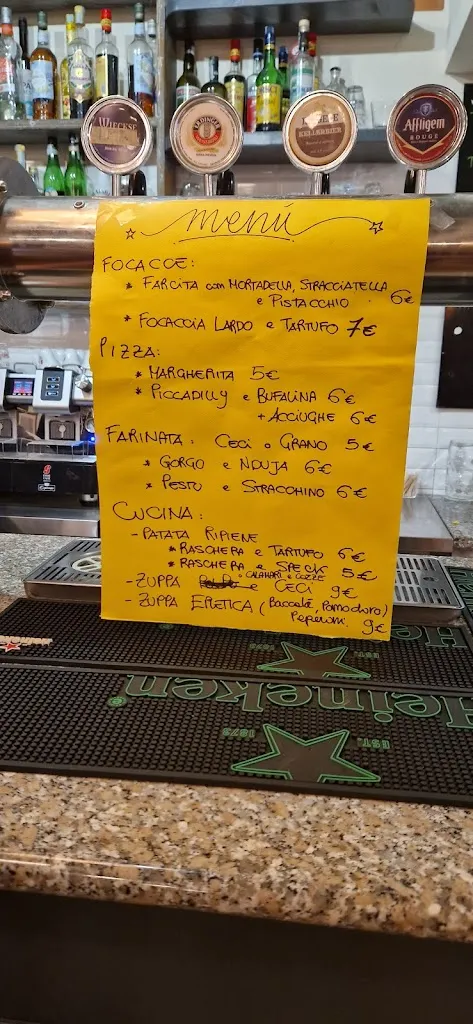 WIECESE
ERDINGER
KELLERBIER
Affligem
ROUGE
menú
FOCACCE:
* FARCITA con MORTADELLA, STRACCIATELLA
e PISTACCHIO. 6€
* FOCACCIA LARDO e TARTUFO 7€
PIZZA:
* MARGHERITA 5€
* PICCADILLY e BUFALINA 6€
+ ACCIUGHE 6€
FARINATA: CECI o GRANO 5€
* GORGO e NDUJA 6€
* PESTO e STRACCHINO 6€
CUCINA:
- PATATA RIPIENE
* RASCHERA e TARTUFO 6€
* RASCHERA e SPECK 5€
- ZUPPA CALAMARI e COZZE e CECI 9€
- ZUPPA ERETICA (Baccalà, Pomodoro,
Peperoni. 9€
Heineken
EST. 1873
Heineken
EST. 1873